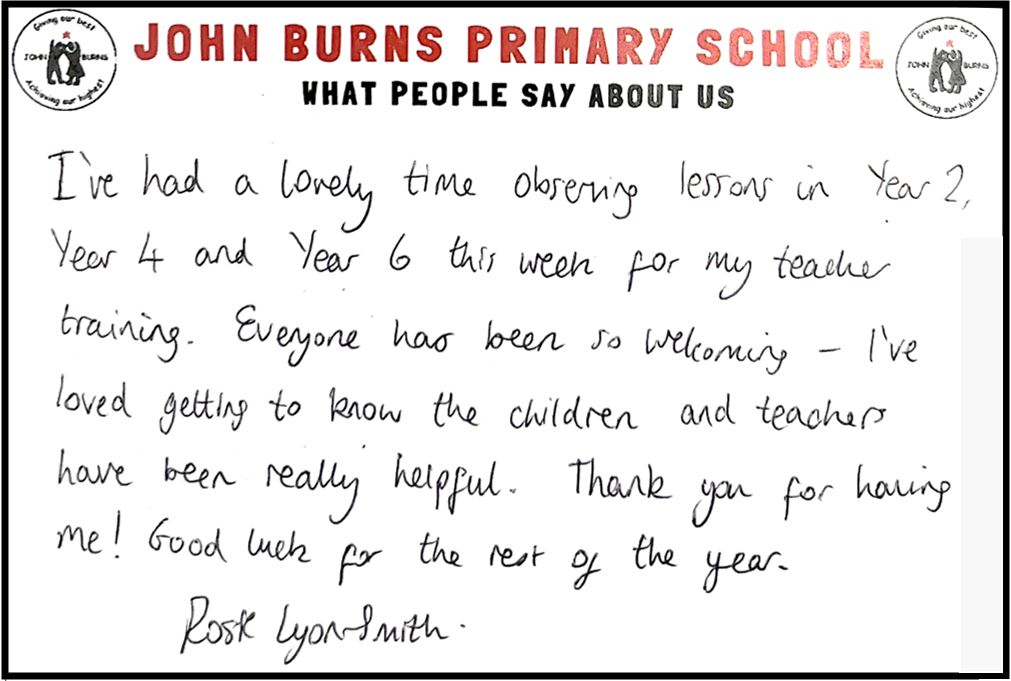 Giving our best
JOHN BURNS
Achieving our highest
JOHN BURNS PRIMARY SCHOOL
WHAT PEOPLE SAY ABOUT US
Giving our best
JOHN BURNS
Achieving our highest
I've had a lovely time observing lessons in Year 2,
Year 4 and Year 6 this week for my teacher
training. Everyone has been so welcoming – I've
loved getting to know the children and teachers
have been really helpful. Thank you for having
me! Good luck for the rest of the year.
Rosie Lyon-Smith.